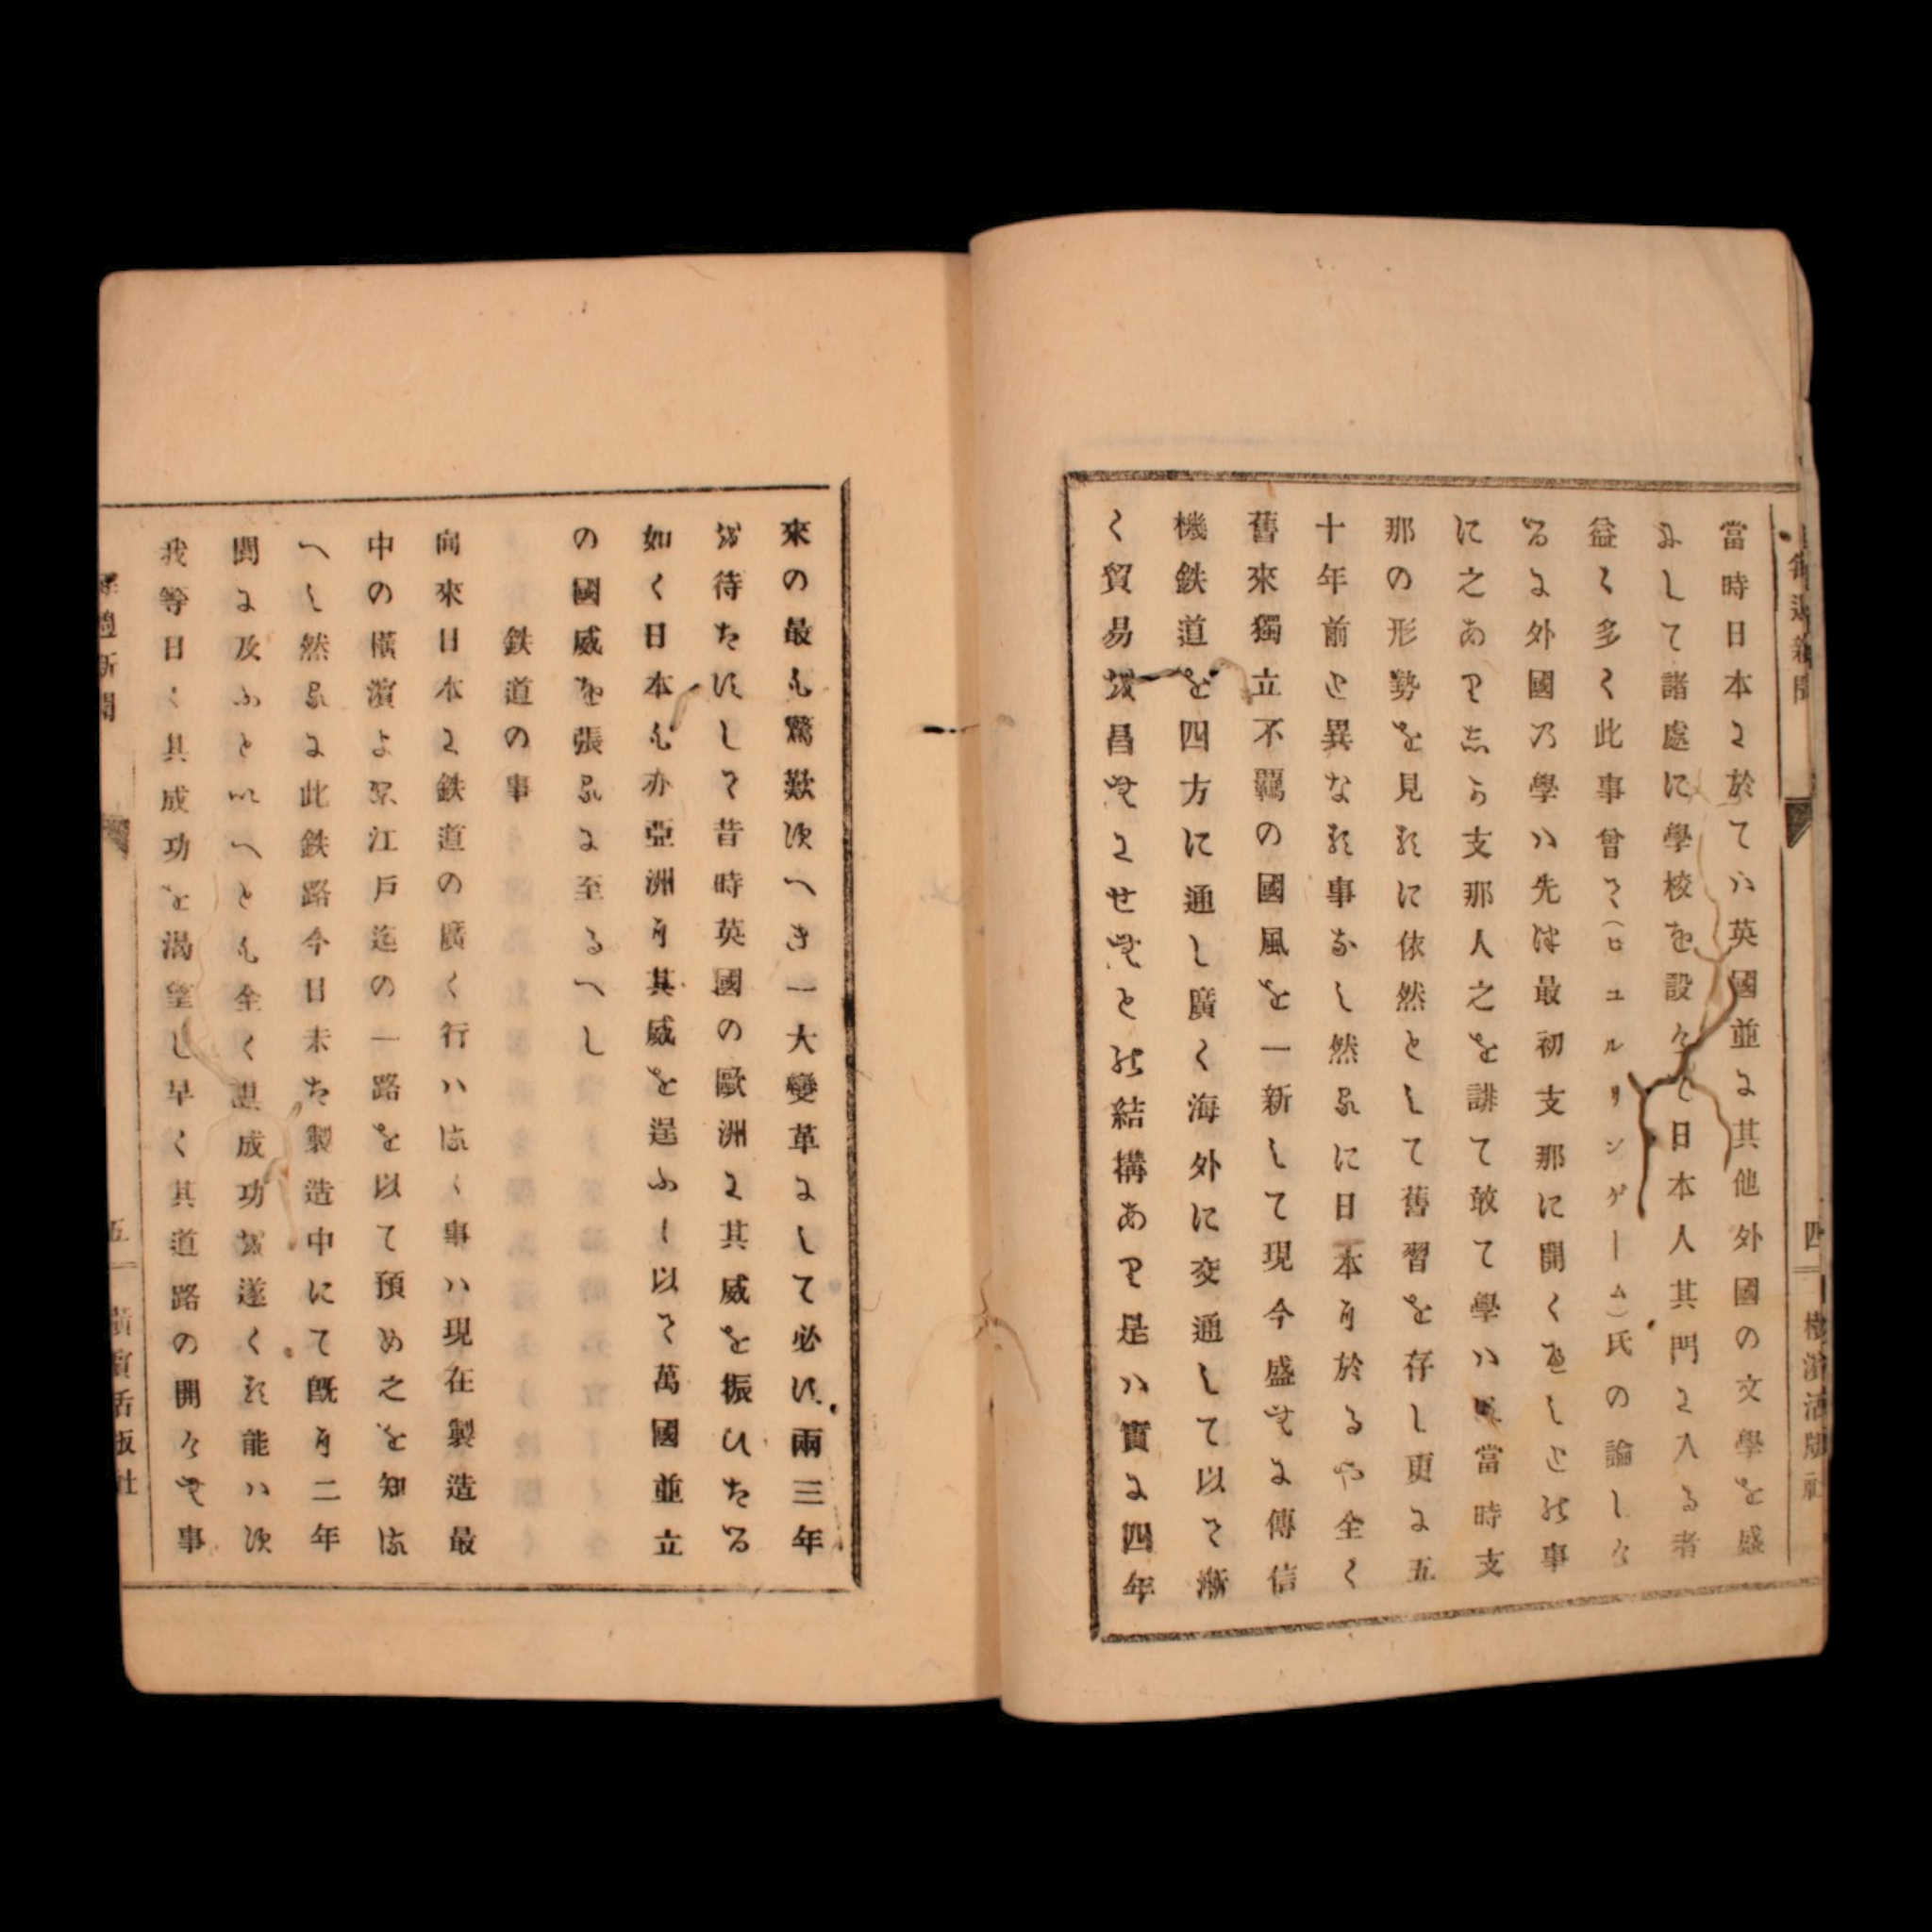 當時日本に於てハ英國並に其他外國の文學を盛
にして諸處に學校を設けて日本人其門に入る者
益く多く此事曾て(ビユルリンゲーム)氏の論しな
るに外國乃學ハ先つ最初支那に開くへしとの事
に之あり志から支那人之を誹て敢て學ハす當時支
那の形勢を見るに依然として舊習を存し更に五
十年前と異なる事なし然るに日本に於るや全く
舊來獨立不羈の國風を一新して現今盛んに傳信
機鉄道を四方に通し廣く海外に交通して以て漸
く貿易を昌んにせんとの結構あり是ハ實に四年
來の最も驚歎すへき一大變革にして必す兩三年
を待たすして昔時英國の歐洲に其威を振ひたる
如く日本も亦亞洲に其威を逞ふし以て萬國並立
の國威を張るに至るへし
鉄道の事
向來日本に鉄道の廣く行ハるへく事ハ現在製造最
中の橫濵より江戸迄の一路を以て預め之を知る
へし然るに此鉄路今日未た製造中にて既に二年
間に及ふといへとも全く其成功を遂くる能ハす
我等日く其成功を渇望し早く其道路の開けん事
四
五